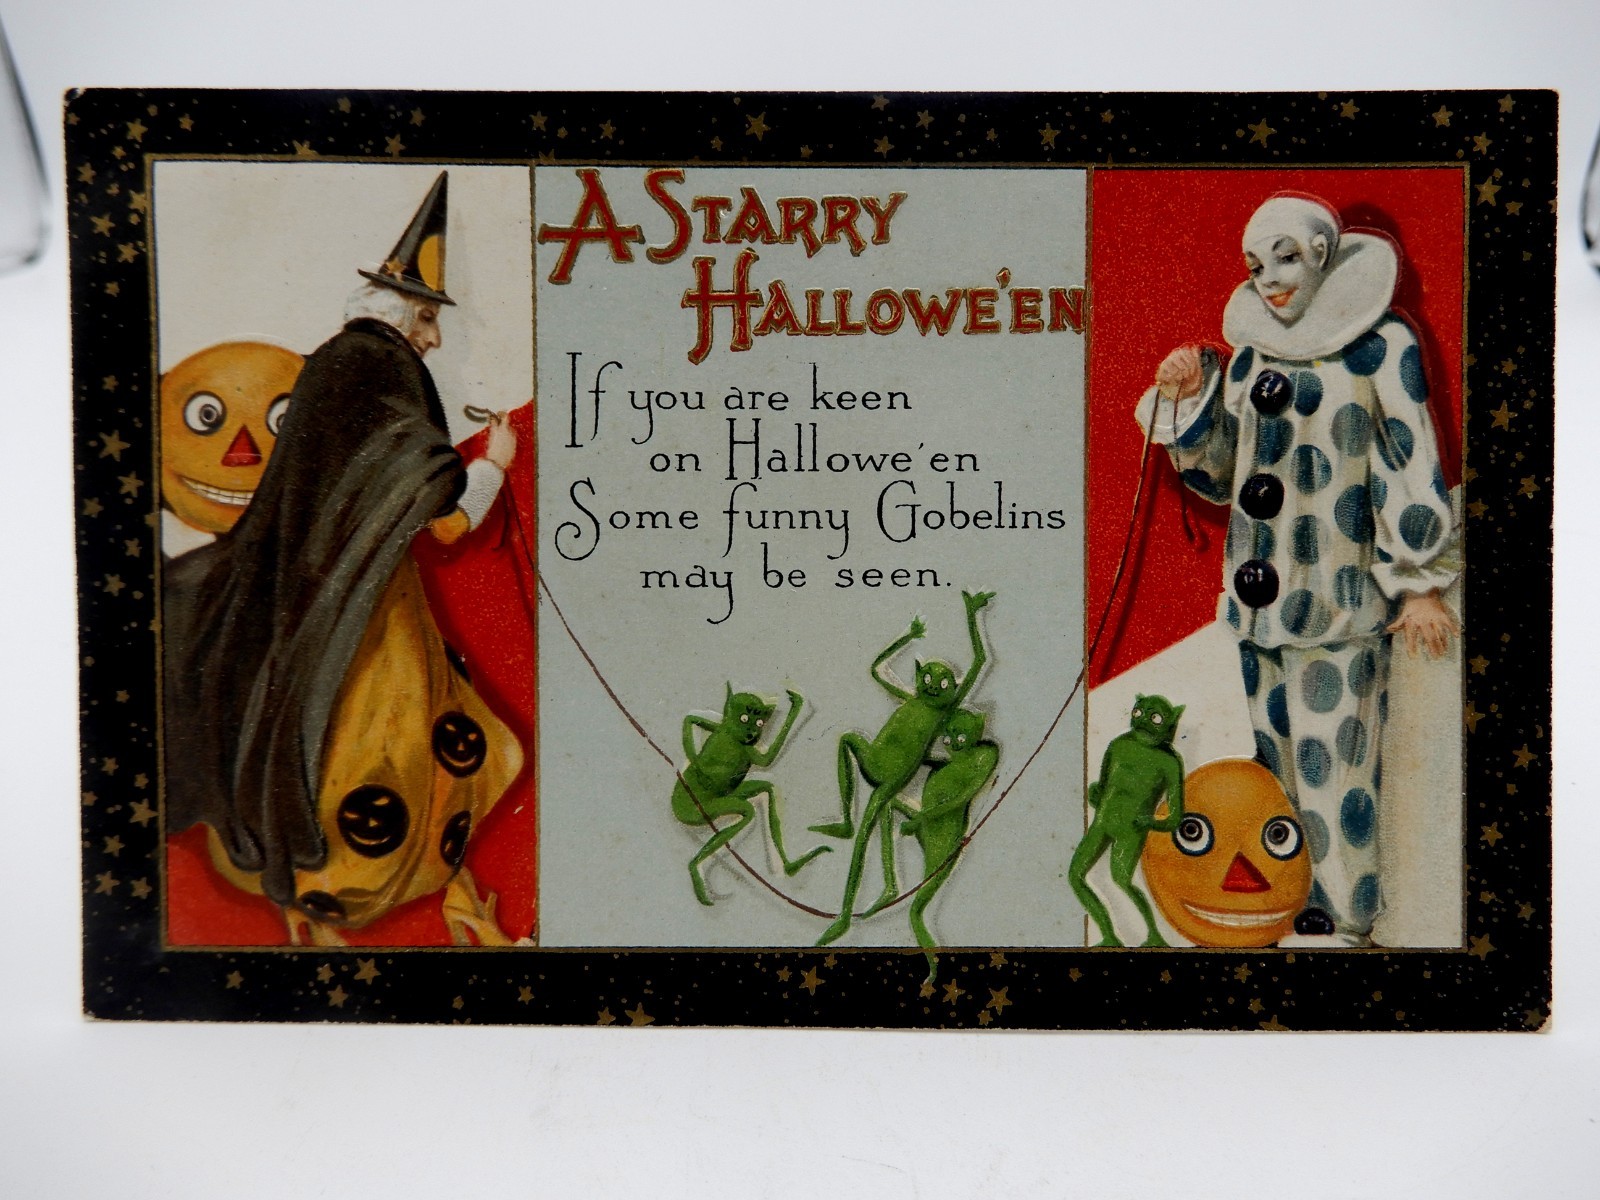 A Starry
Hallowe'en
If you are keen
on Hallowe'en
Some funny Gobelins
may be seen.